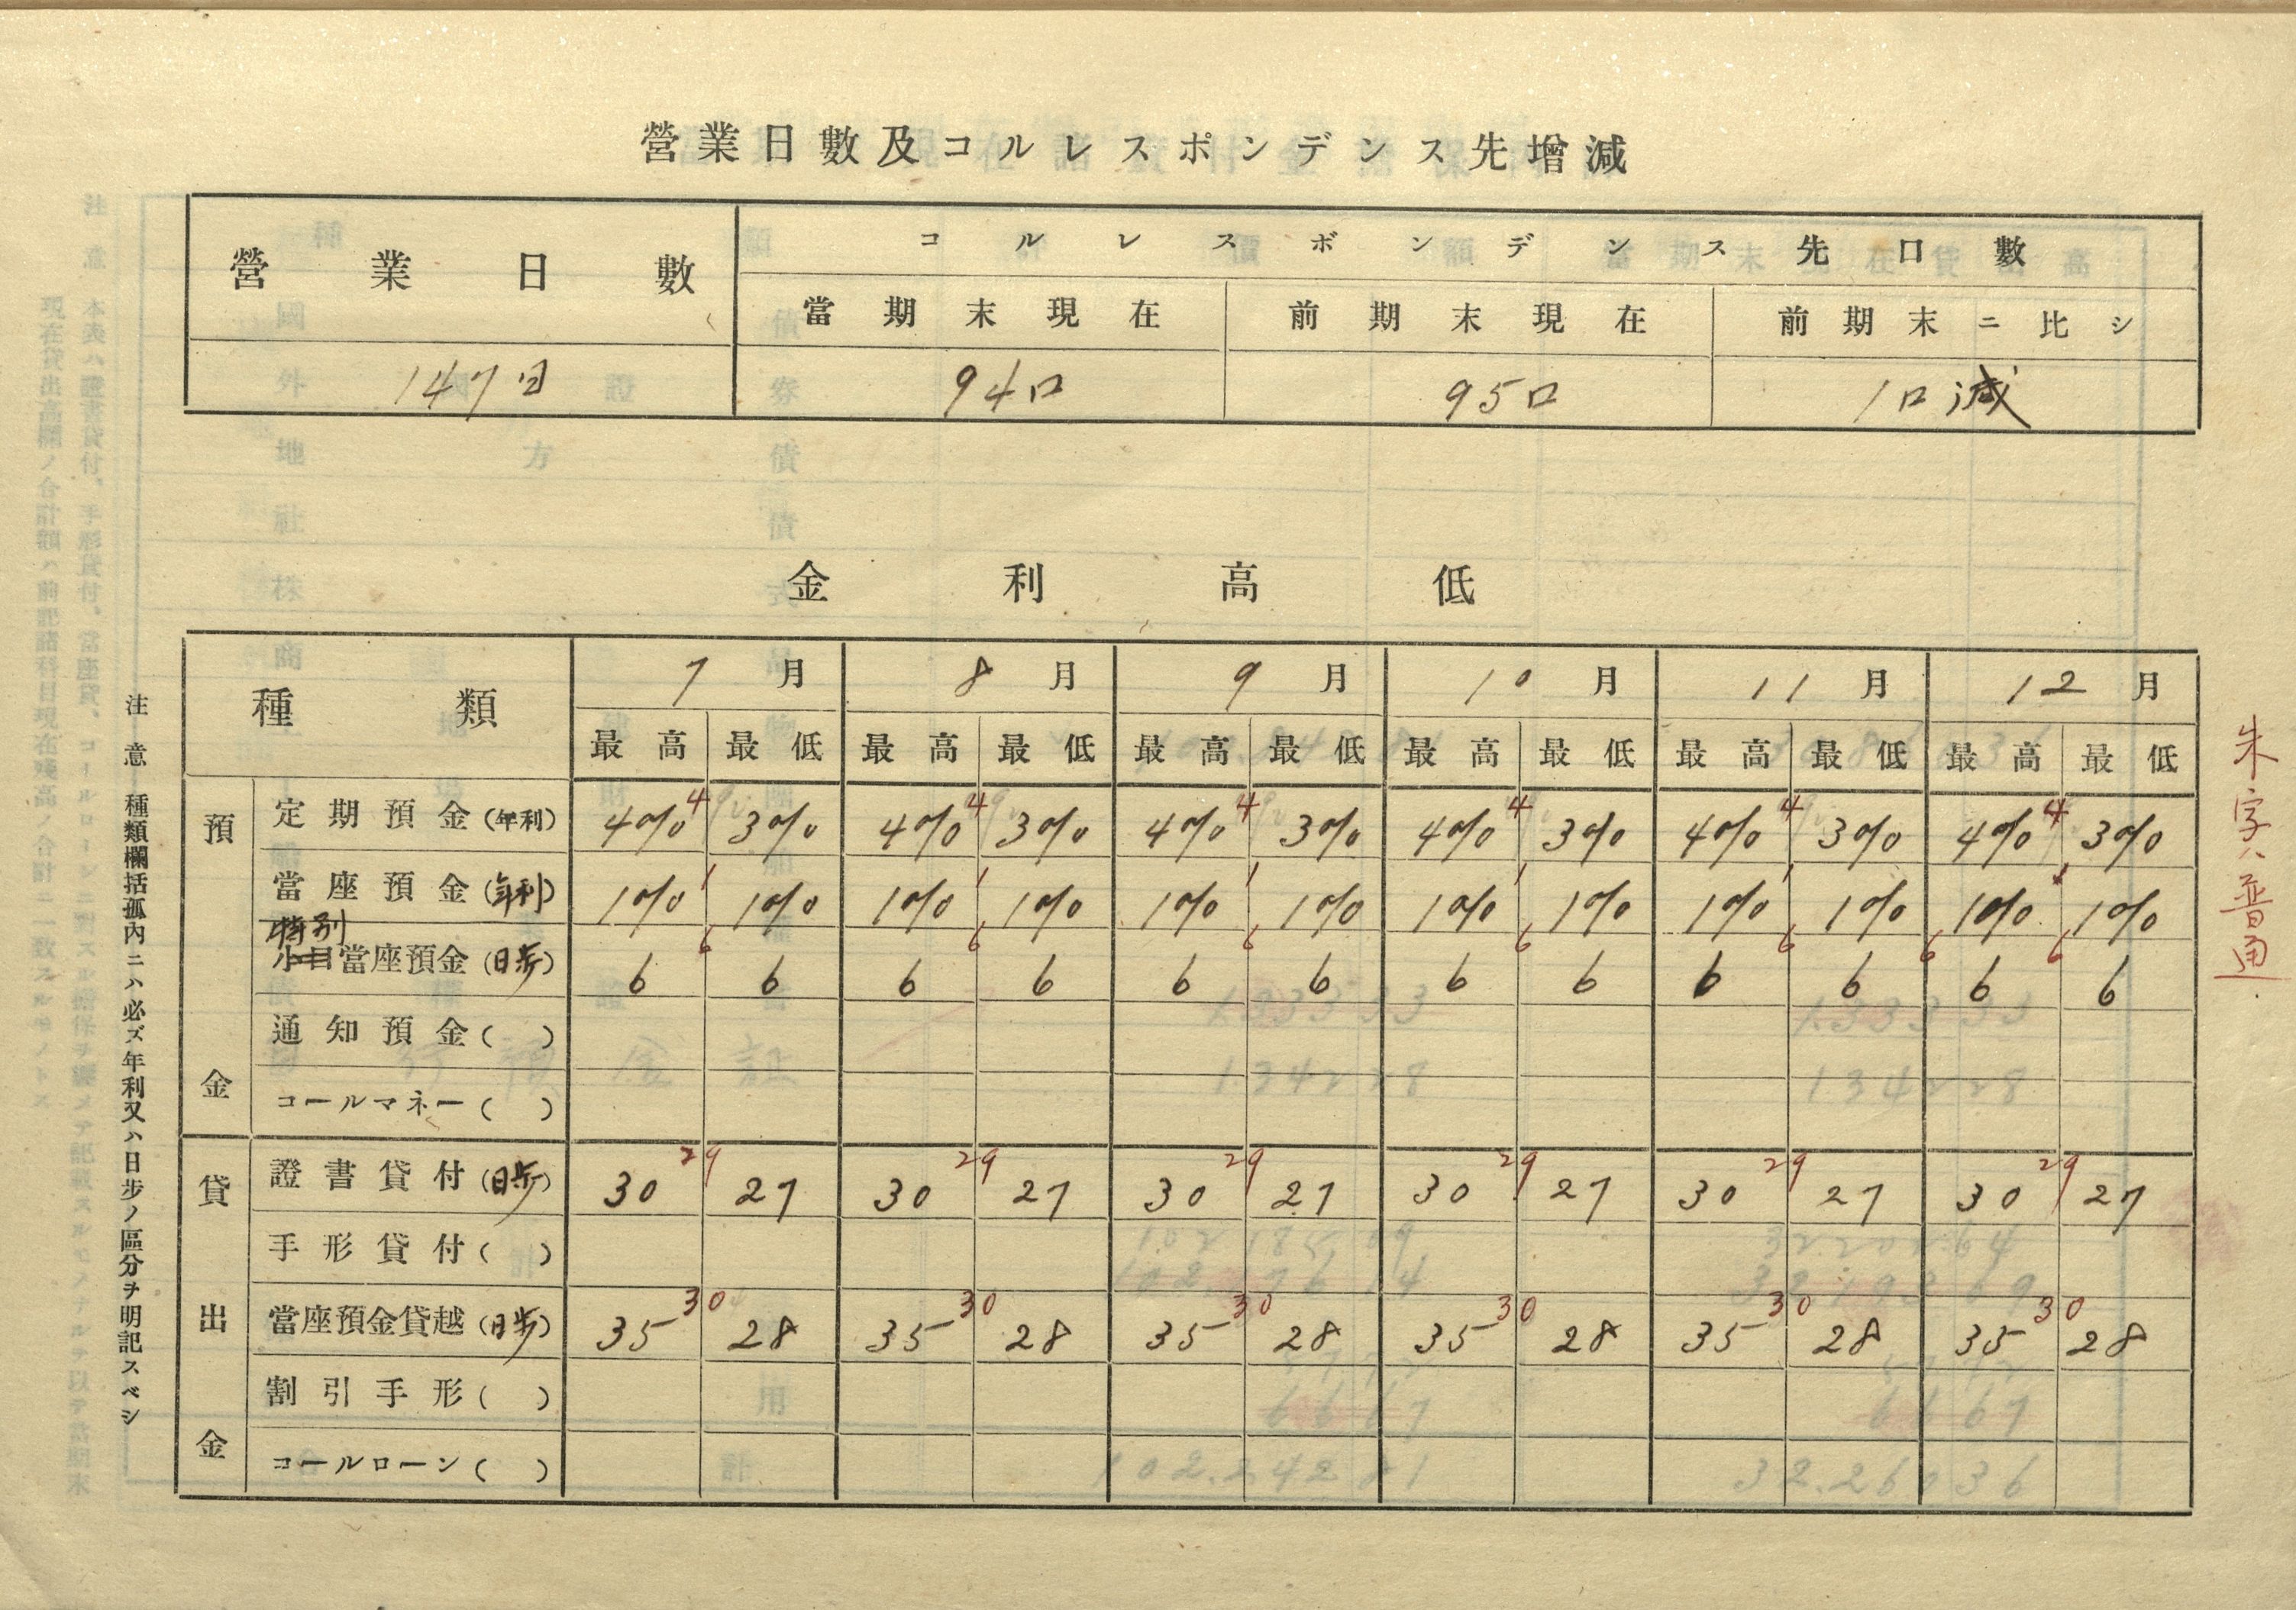 營業日數及コルレスポンデンス先增減
營業日數 コルレスボンデンス先口數
當期末現在 前期末現在 前期末ニ比シ
147日 94口 95口 1口減
金利高低
種類 7月 8月 9月 10月 11月 12月
最高 最低 最高 最低 最高 最低 最高 最低 最高 最低 最高 最低
預金
定期預金(年利) 4% 4 3% 4% 4 3% 4% 4 3% 4% 4 3% 4% 4 3% 4% 4 3%
當座預金(年利) 1% 1 1% 1% 1 1% 1% 1 1% 1% 1 1% 1% 1 1% 1% 1 1%
特別
小口當座預金(日歩) 6 6 6 6 6 6 6 6 6 6 6 6 6 6 6 6 6 6 6
通知預金( )
コールマネー( )
貸出金
證書貸付(日歩) 30 29 27 30 29 27 30 29 27 30 29 27 30 29 27 30 29 27
手形貸付( )
當座預金貸越(日歩) 35 30 28 35 30 28 35 30 28 35 30 28 35 30 28 35 30 28
割引手形( )
コールローン( )
朱字ハ普通
注意 種類欄括孤內ニハ必ズ年利又ハ日步ノ區分ヲ明記スベシ